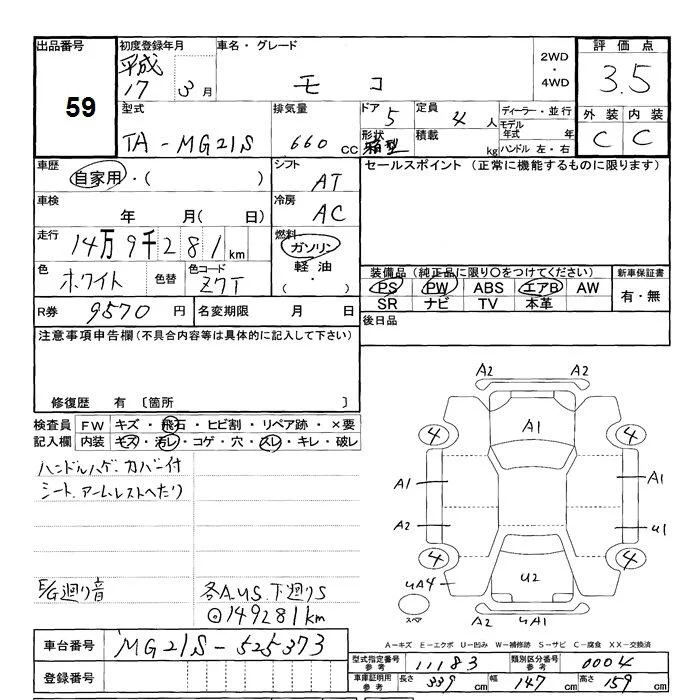 出品番号
59
初度登録年月
平成
17 3月
車名・グレード
モコ
2WD
・
4WD
評価点
3.5
外装 内装
C C
型式
TA-MG21S
排気量
660 CC
ドア 5
形状 箱型
定員 4人
積載 kg
ディーラー・並行
モデル
年式 年
ハンドル 左・右
車歴
自家用・( )
シフト
AT
セールスポイント (正常に機能するものに限ります)
車検
年 月( 日)
冷房
AC
走行
14万9千281km
燃料
ガソリン
軽油・
( )
色
ホワイト
色替
色コード
Z7T
装備品 (純正品に限り○をつけてください)
PS PW ABS エアB AW
SR ナビ TV 本革
新車保証書
有・無
R券 9570円
名変期限 月 日
後日品
注意事項申告欄(不具合内容等は具体的に記入して下さい)
修復歴 有 〔箇所 〕
検査員
記入欄
FW キズ・飛石・ヒビ割・リペア跡・×要
内装 キズ・汚レ・コゲ・穴・スレ・キレ・破レ
ハンドルハゲ.カバー付
シート.アームレストへたり
E/G廻り音
各A.U.S.下廻りS
⊙149281km
A2 A2
A1
4 4
A1 A1
A2 U1
4 4
UA4
U2
スペア
A2 UA1
A-キズ E-エクボ U-凹み W-補修跡 S-サビ C-腐食 XX-交換済
車台番号 MG21S-525373
登録番号
型式指定番号
参考
11183
類別区分番号
参考
0004
車庫証明用
参考
長さ 339cm 幅 147cm 高さ 159cm